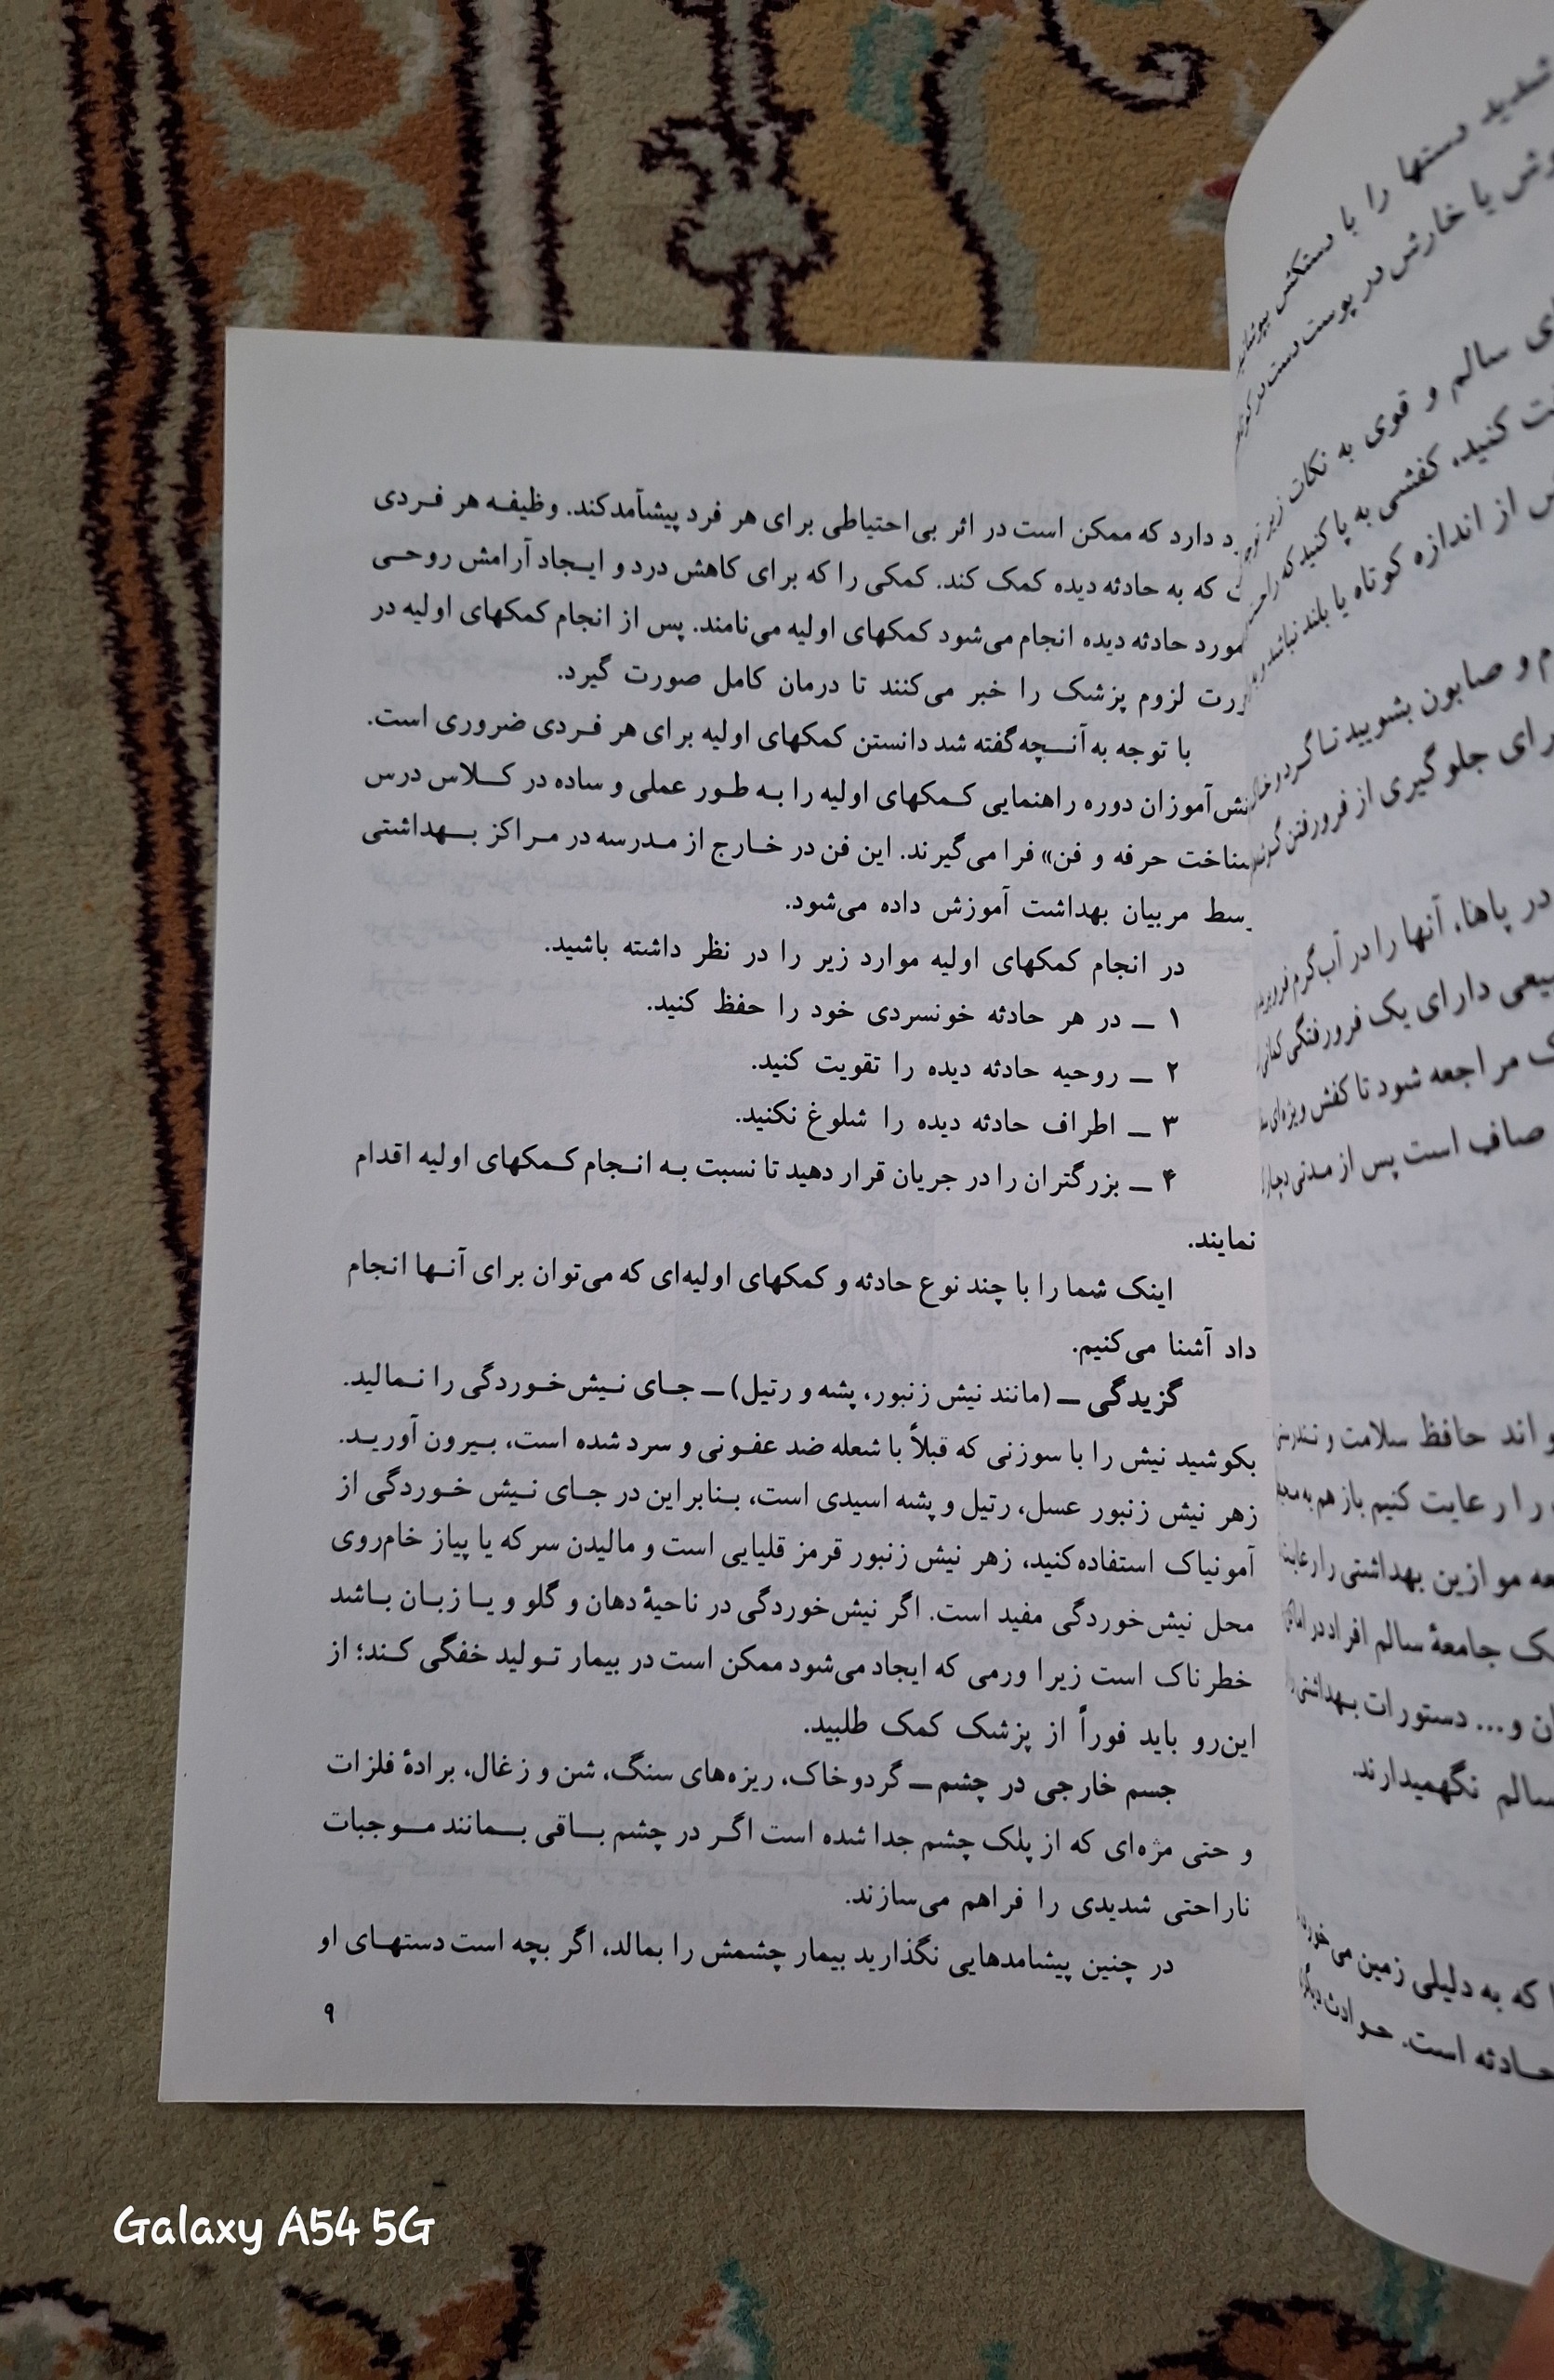 دارد که ممکن است در اثر بی‌احتیاطی برای هر فرد پیشآمدکند. وظیفه هر فردی
که به حادثه دیده کمک کند. کمکی را که برای کاهش درد و ایجاد آرامش روحی
مورد حادثه دیده انجام می‌شود کمکهای اولیه می‌نامند. پس از انجام کمکهای اولیه در
لزوم پزشک را خبر می‌کنند تا درمان کامل صورت گیرد.
با توجه به آنچه گفته شد دانستن کمکهای اولیه برای هر فردی ضروری است.
نش‌آموزان دوره راهنمایی کمکهای اولیه را به طور عملی و ساده در کلاس درس
شناخت حرفه و فن» فرا می‌گیرند. این فن در خارج از مدرسه در مراکز بهداشتی
مربیان بهداشت آموزش داده می‌شود.
در انجام کمکهای اولیه موارد زیر را در نظر داشته باشید.
۱ ــ در هر حادثه خونسردی خود را حفظ کنید.
۲ ــ روحیه حادثه دیده را تقویت کنید.
۳ ــ اطراف حادثه دیده را شلوغ نکنید.
۴ ــ بزرگتران را در جریان قرار دهید تا نسبت به انجام کمکهای اولیه اقدام
نمایند.
اینک شما را با چند نوع حادثه و کمکهای اولیه‌ای که می‌توان برای آنها انجام
داد آشنا می‌کنیم.
گزیدگی ــ (مانند نیش زنبور، پشه و رتیل) ــ جای نیش‌خوردگی را نمالید.
بکوشید نیش را با سوزنی که قبلاً با شعله ضد عفونی و سرد شده است، بیرون آورید.
زهر نیش زنبور عسل، رتیل و پشه اسیدی است، بنابراین در جای نیش خوردگی از
آمونیاک استفاده کنید، زهر نیش زنبور قرمز قلیایی است و مالیدن سرکه یا پیاز خام‌روی
محل نیش‌خوردگی مفید است. اگر نیش‌خوردگی در ناحیهٔ دهان و گلو و یا زبان باشد
خطرناک است زیرا ورمی که ایجاد می‌شود ممکن است در بیمار تولید خفگی کند؛ از
این‌رو باید فوراً از پزشک کمک طلبید.
جسم خارجی در چشم ــ گردوخاک، ریزه‌های سنگ، شن و زغال، برادهٔ فلزات
و حتی مژه‌ای که از پلک چشم جدا شده است اگر در چشم باقی بمانند موجبات
ناراحتی شدیدی را فراهم می‌سازند.
در چنین پیشامدهایی نگذارید بیمار چشمش را بمالد، اگر بچه است دستهای او
۹
شدید دستها را با دستکش بپوشانید
یا خارش در پوست دست
سالم و قوی به نکات زیر توجه
کنید، کفشی به پا کنید که راحت
از اندازه کوتاه یا بلند نباشد
و صابون بشویید تا گرد و خاک
برای جلوگیری از فرورفتن گوشه
در پاها، آنها را در آب گرم فرو برید
دارای یک فرورفتگی کمانی
مراجعه شود تا کفش ویژه‌ای
صاف است پس از مدتی دچار
حافظ سلامت و تندرستی
را رعایت کنیم باز هم به
موازین بهداشتی را رعایت
یک جامعهٔ سالم افراد در اماکن
و... دستورات بهداشتی
سالم نگهمیدارند.
که به دلیلی زمین می‌خورد
حادثه است. حوادث دیگر
Galaxy A54 5G